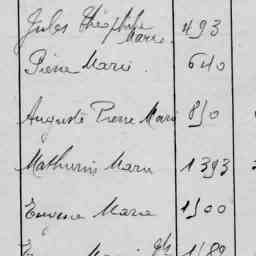 Jules Théophile Marie 493
Pierre Marie 640
Auguste Pierre Marie 850
Mathurin Marie 1393
Eugène Marie 1500